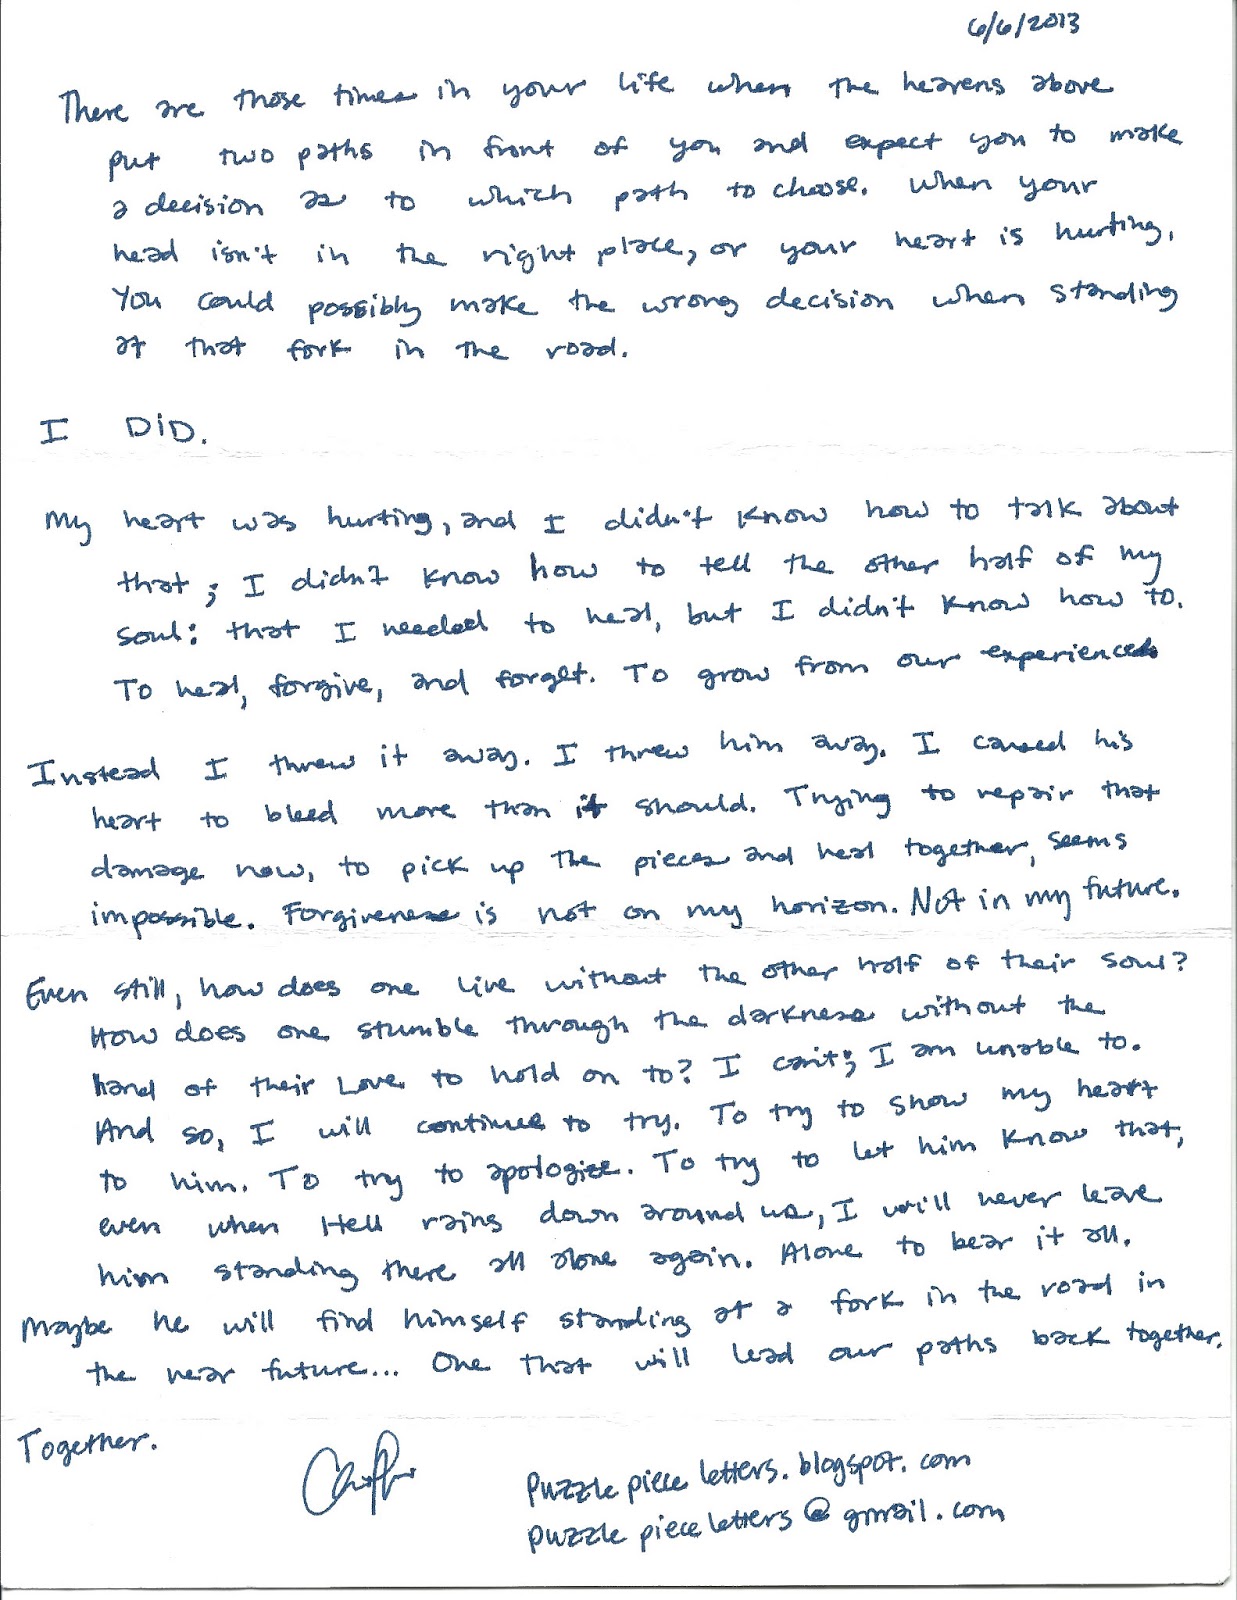 6/6/2013
There are those times in your life when the heavens above
put two paths in front of you and expect you to make
a decision as to which path to choose. When your
head isn't in the right place, or your heart is hurting,
You could possibly make the wrong decision when standing
at that fork in the road.
I DiD.
My heart was hurting, and I didn't know how to talk about
that; I didn't know how to tell the other half of my
soul: that I needed to heal, but I didn't know how to.
To heal, forgive, and forget. To grow from our experiences
Instead I threw it away. I threw him away. I caused his
heart to bleed more than it should. Trying to repair that
damage now, to pick up the pieces and heal together, seems
impossible. Forgiveness is not on my horizon. Not in my future.
Even still, how does one live without the other half of their soul?
How does one stumble through the darkness without the
hand of their Love to hold on to? I can't; I am unable to.
And so, I will continue to try. To try to show my heart
to him. To try to apologize. To try to let him know that,
even when Hell rains down around us, I will never leave
him standing there all alone again. Alone to bear it all.
Maybe he will find himself standing at a fork in the road in
the near future... One that will lead our paths back together.
Together.
puzzle piece letters. blogspot. com
puzzle piece letters @ gmail. com